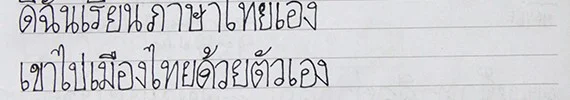 ดิฉันเรียนภาษาไทยเอง
เขาไปเมืองไทยด้วยตัวเอง